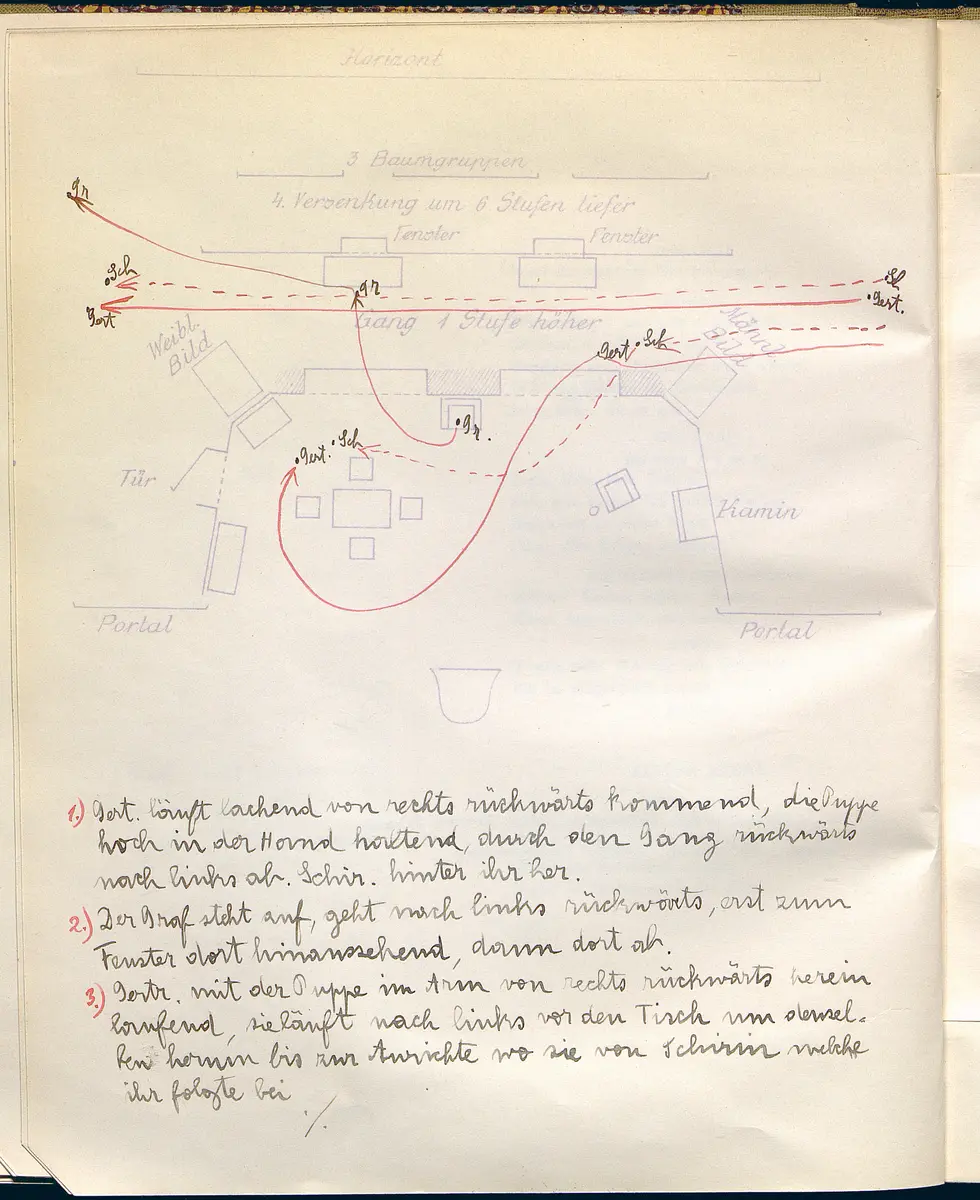 Horizont
3 Baumgruppen
4. Versenkung um 6 Stufen tiefer
Fenster
Fenster
Gr
Sch
Gert
Gr
Sch
Gert.
Gang 1 Stufe höher
Weibl.
Bild
Männl.
Bild
Gert
Sch
Gr.
Gert.
Sch
Tür
Kamin
Portal
Portal
1.) Gert. läuft lachend von rechts rückwärts kommend, die Puppe
hoch in der Hand haltend, durch den Gang rückwärts
nach links ab. Schir. hinter ihr her.
2.) Der Graf steht auf, geht nach links rückwärts, erst zum
Fenster dort hinaussehend, dann dort ab.
3.) Gertr. mit der Puppe im Arm von rechts rückwärts herein
laufend, sie läuft nach links vor den Tisch um densel-
ben herum bis zur Anrichte wo sie von Schirin welche
ihr folgte bei
./.